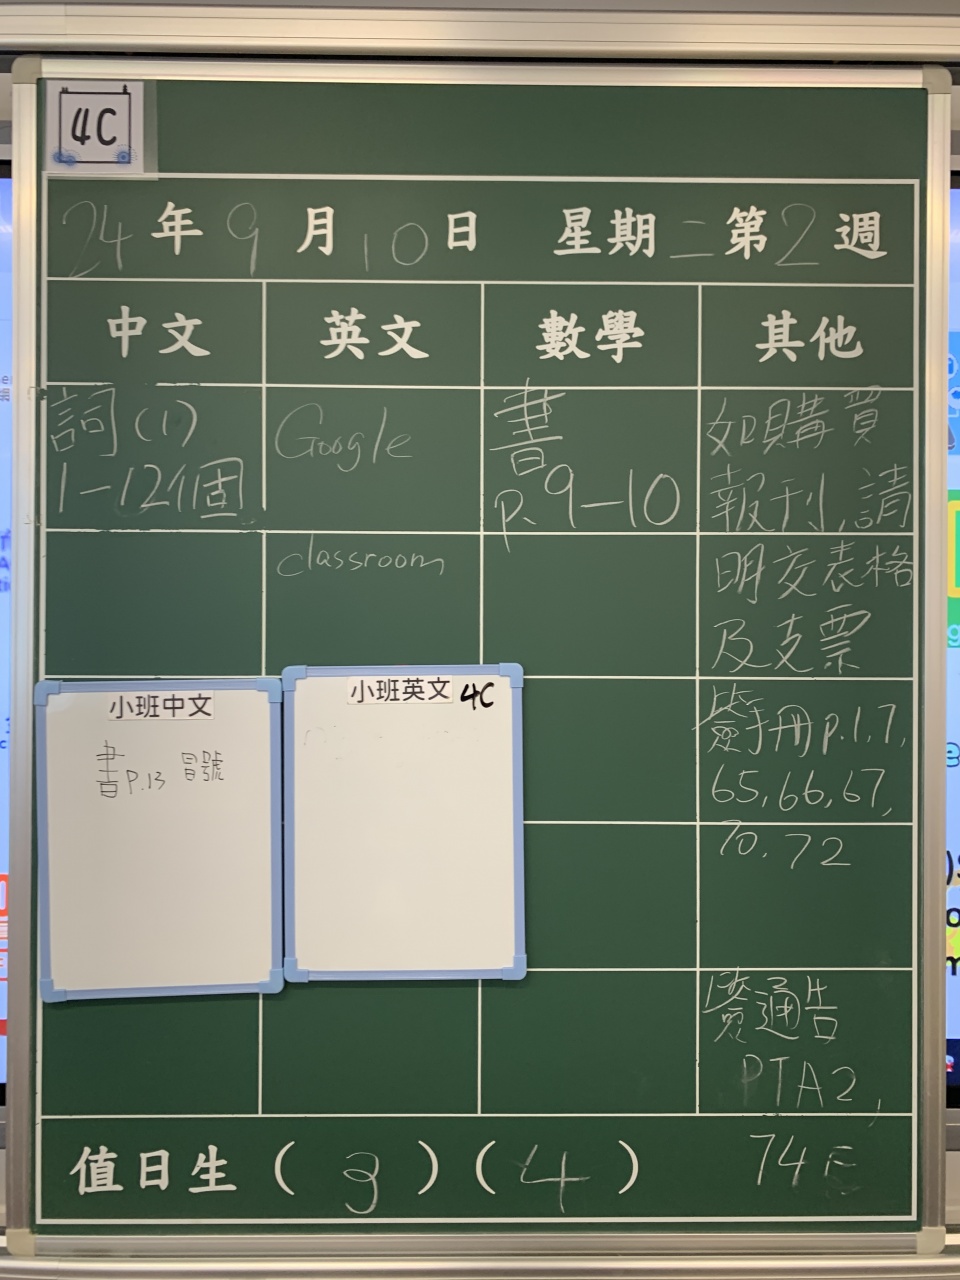 4C
24年9月10日 星期二第2週
中文 英文 數學 其他
詞(1)
1-12個
Google
classroom
書
p.9-10
如購買
報刊,請
明交表格
及支票
簽手冊p.1,7,
65,66,67,
70,72
簽通告
PTA2,
74E
小班中文
書P.13 冒號
小班英文 4C
值日生(3)(4)